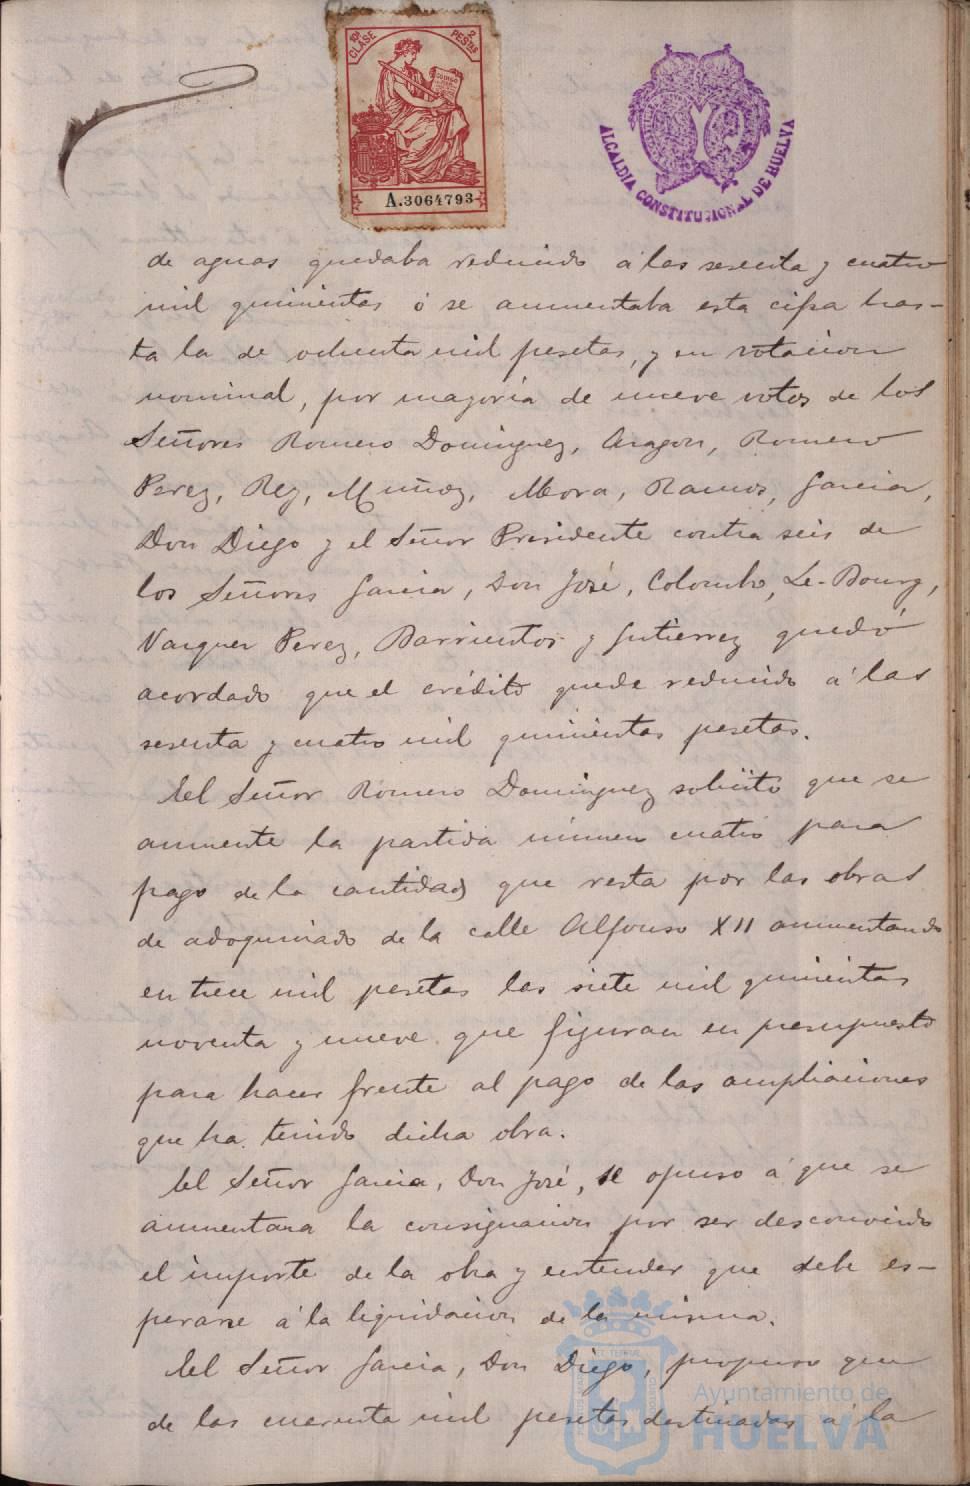 10ª CLASE 2 PESETAS
CODIGO
A.3064793
ALCALDIA CONSTITUCIONAL DE HUELVA
de aguas quedaba reducido á las sesenta y cuatro
mil quinientas ó se aumentaba esta cifra has-
ta la de ochenta mil pesetas, y en votacion
nominal, por mayoria de nueve votos de los
Señores Romero Dominguez, Aragon, Romero
Perez, Rey, Muñoz, Mora, Ramos, Garcia,
Don Diego y el Señor Presidente contra seis de
los Señores Garcia, Don José, Colombo, Le-Bourg,
Vazquez Perez, Barrientos y Gutierrez quedó
acordado que el crédito quede reducido á las
sesenta y cuatro mil quinientas pesetas.
El Señor Romero Dominguez solicitó que se
aumente la partida número cuatro para
pago de la cantidad que resta por las obras
de adoquinado de la calle Alfonso XII aumentando
en trece mil pesetas las siete mil quinientas
noventa y nueve que figuran en presupuesto
para hacer frente al pago de las ampliaciones
que ha tenido dicha obra.
El Señor Garcia, Don José, se opuso á que se
aumentara la consignacion por ser desconocido
el importe de la obra y entender que debe es-
perarse á la liquidacion de la misma.
El Señor Garcia, Don Diego, propuso que
de las cuarenta mil pesetas destinadas á la
Ayuntamiento de
HUELVA